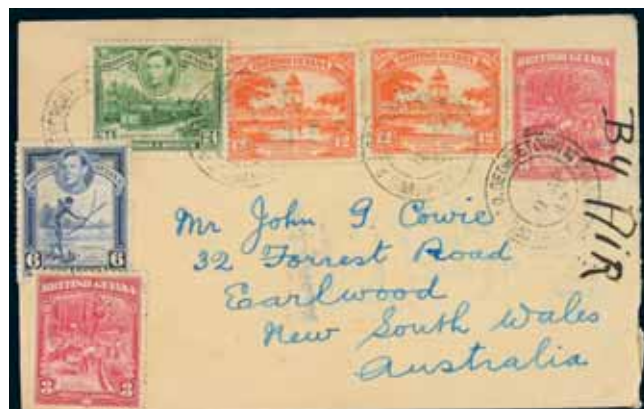 BRITISH GUIANA
BRITISH GUIANA
BRITISH GUIANA
BRITISH GUIANA
BRITISH GUIANA
6 6
BRITISH GUIANA
3 3
GEORGETOWN
By AIR
Mr John G. Cowie
32 Forrest Road
Earlwood
New South Wales
Australia